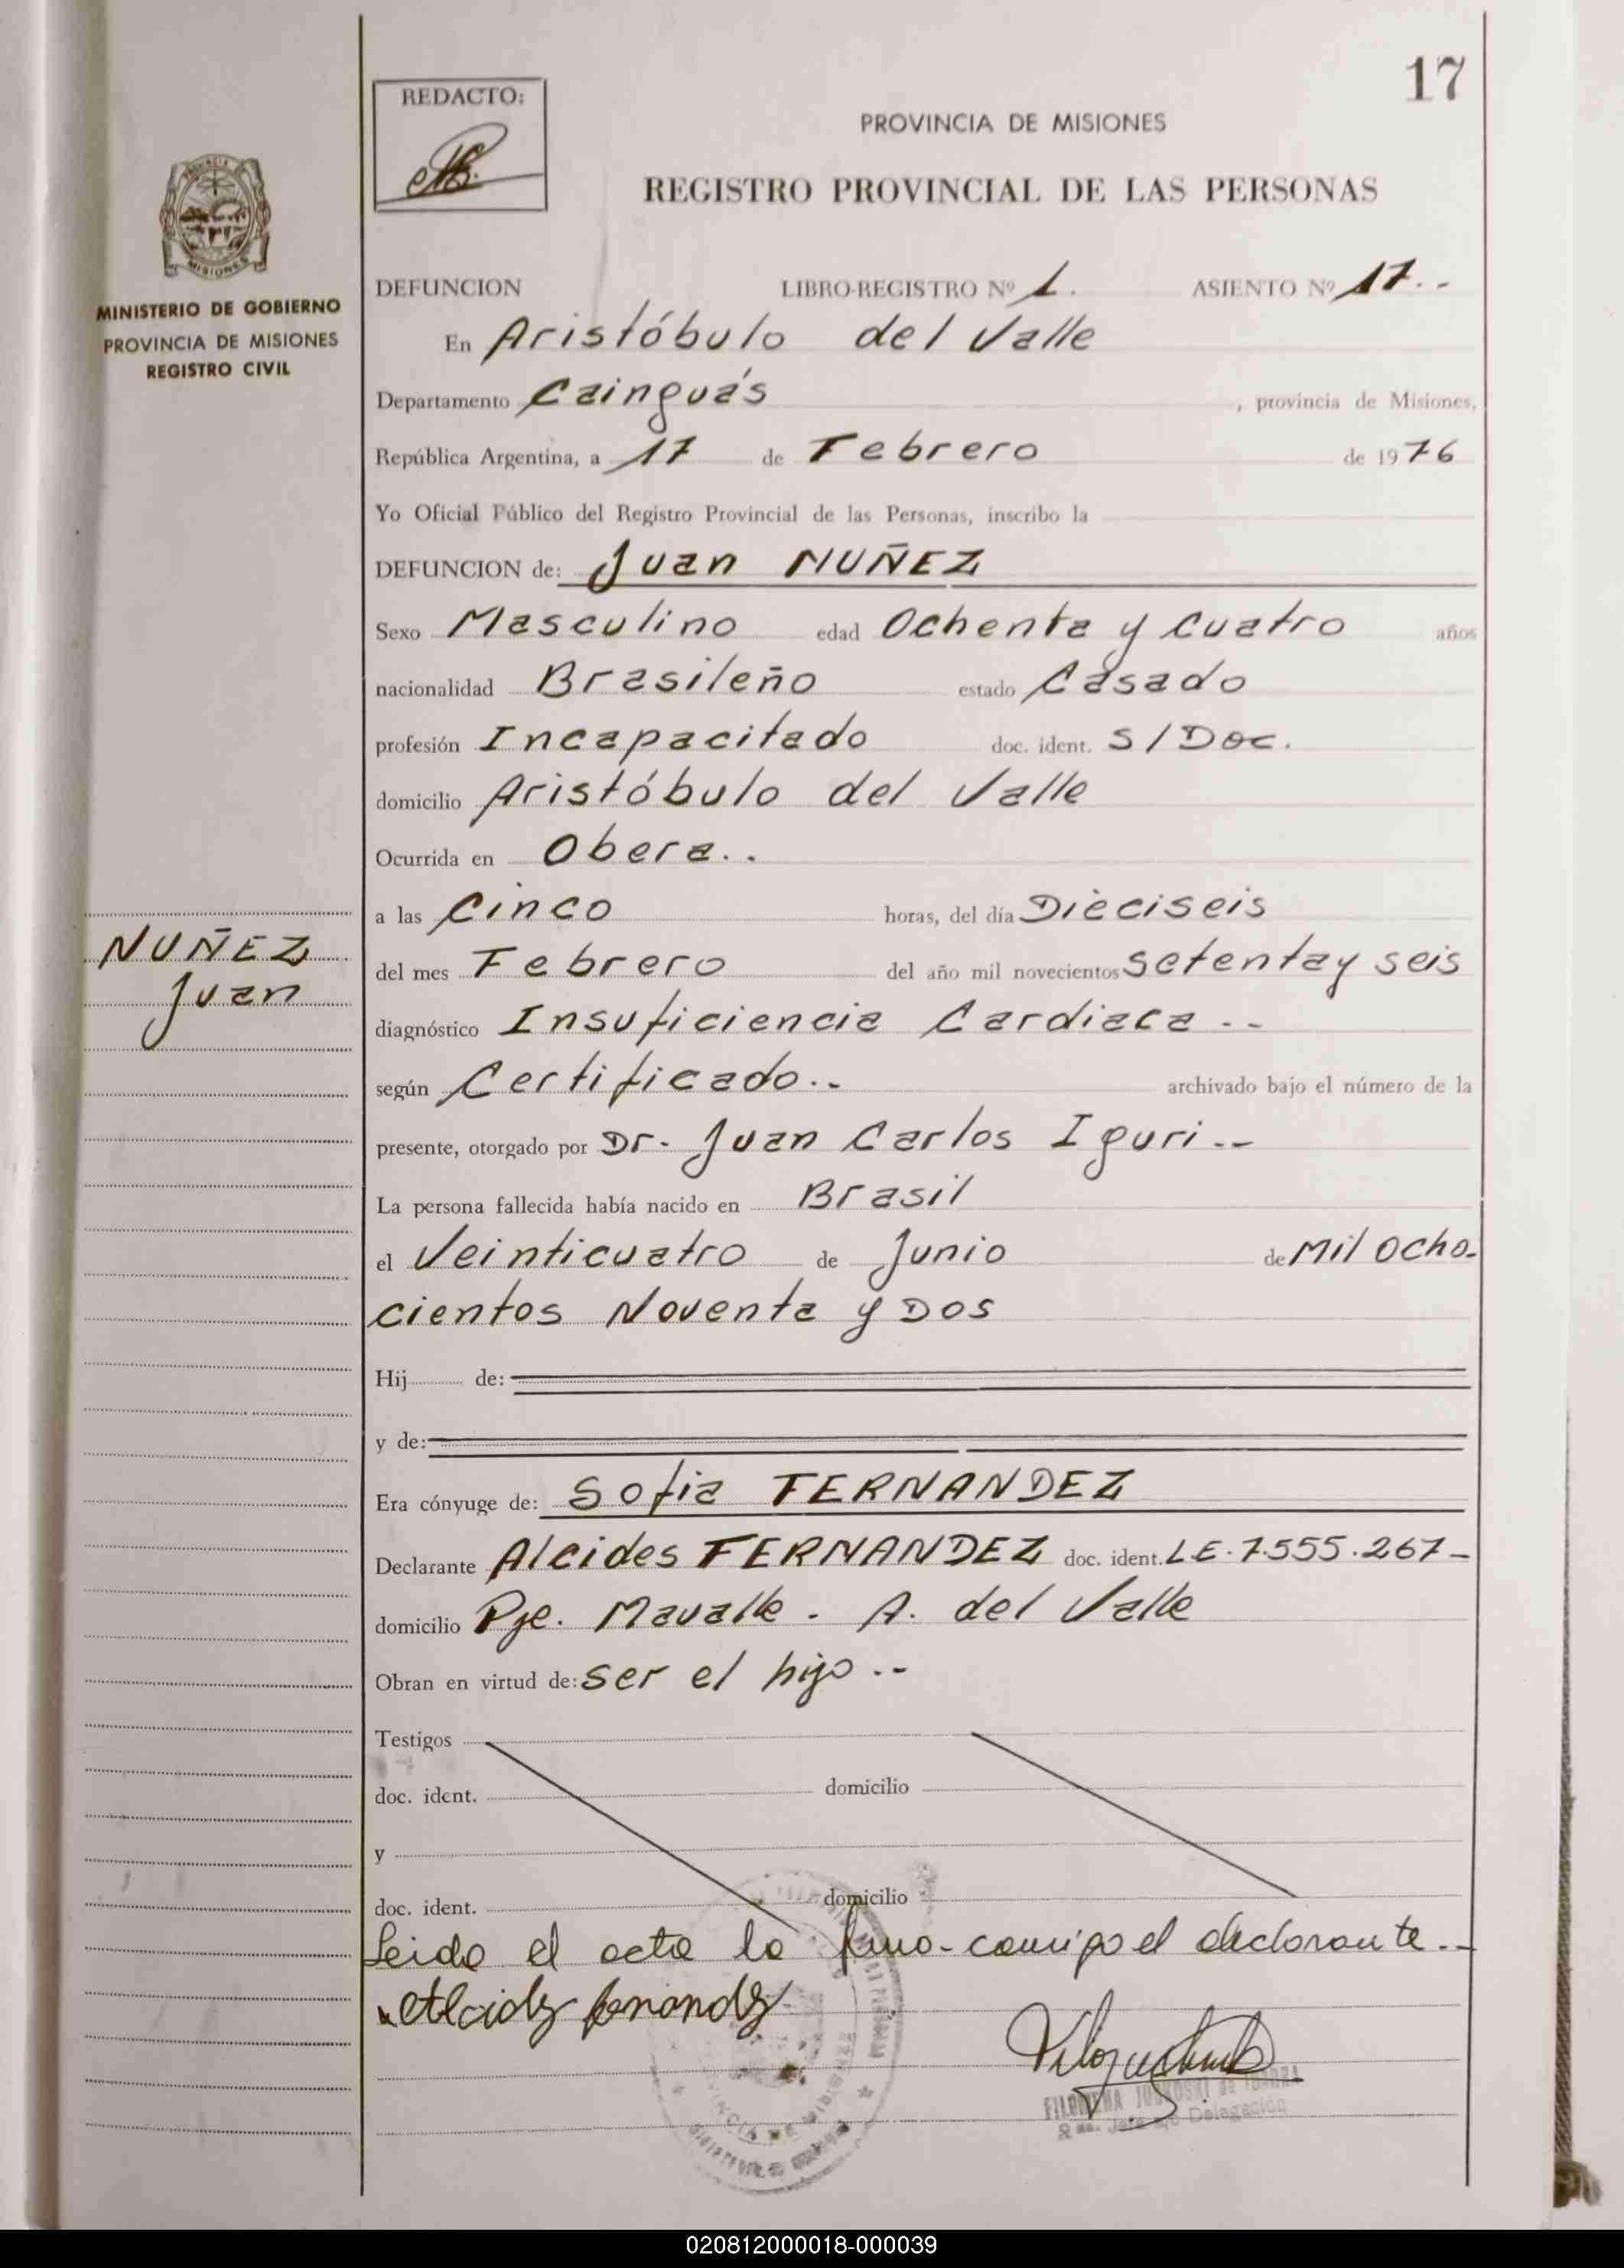 17
REDACTO:
PROVINCIA DE MISIONES
REGISTRO PROVINCIAL DE LAS PERSONAS
MISIONES
MINISTERIO DE GOBIERNO
PROVINCIA DE MISIONES
REGISTRO CIVIL
DEFUNCION LIBRO-REGISTRO Nº 1. ASIENTO Nº 17..-
En Aristóbulo del Valle
Departamento Cainguás , provincia de Misiones,
República Argentina, a 17 de Febrero de 1976
Yo Oficial Público del Registro Provincial de las Personas, inscribo la
DEFUNCION de: Juan NUÑEZ
Sexo Masculino edad Ochenta y Cuatro años
nacionalidad Brasileño estado Casado
profesión Incapacitado doc. ident. S/Doc.
domicilio Aristóbulo del Valle
Ocurrida en Obera..
a las Cinco horas, del día Dieciseis
NUÑEZ
Juan
del mes Febrero del año mil novecientos setenta y seis
diagnóstico Insuficiencia Cardiaca --
según Certificado.. archivado bajo el número de la
presente, otorgado por Dr. Juan Carlos Iguri --
La persona fallecida había nacido en Brasil
el Veinticuatro de Junio de Mil Ocho-
cientos Noventa y Dos
Hij de:
y de:
Era cónyuge de: Sofia FERNANDEZ
Declarante Alcides FERNANDEZ doc. ident. L.E. 7.555.267-
domicilio Pje. Mavalle. A. del Valle
Obran en virtud de: ser el hijo --
Testigos
doc. ident. domicilio
y
doc. ident. domicilio
Leida el acta la firma conmigo el declarante..-
Alcides Fernandez